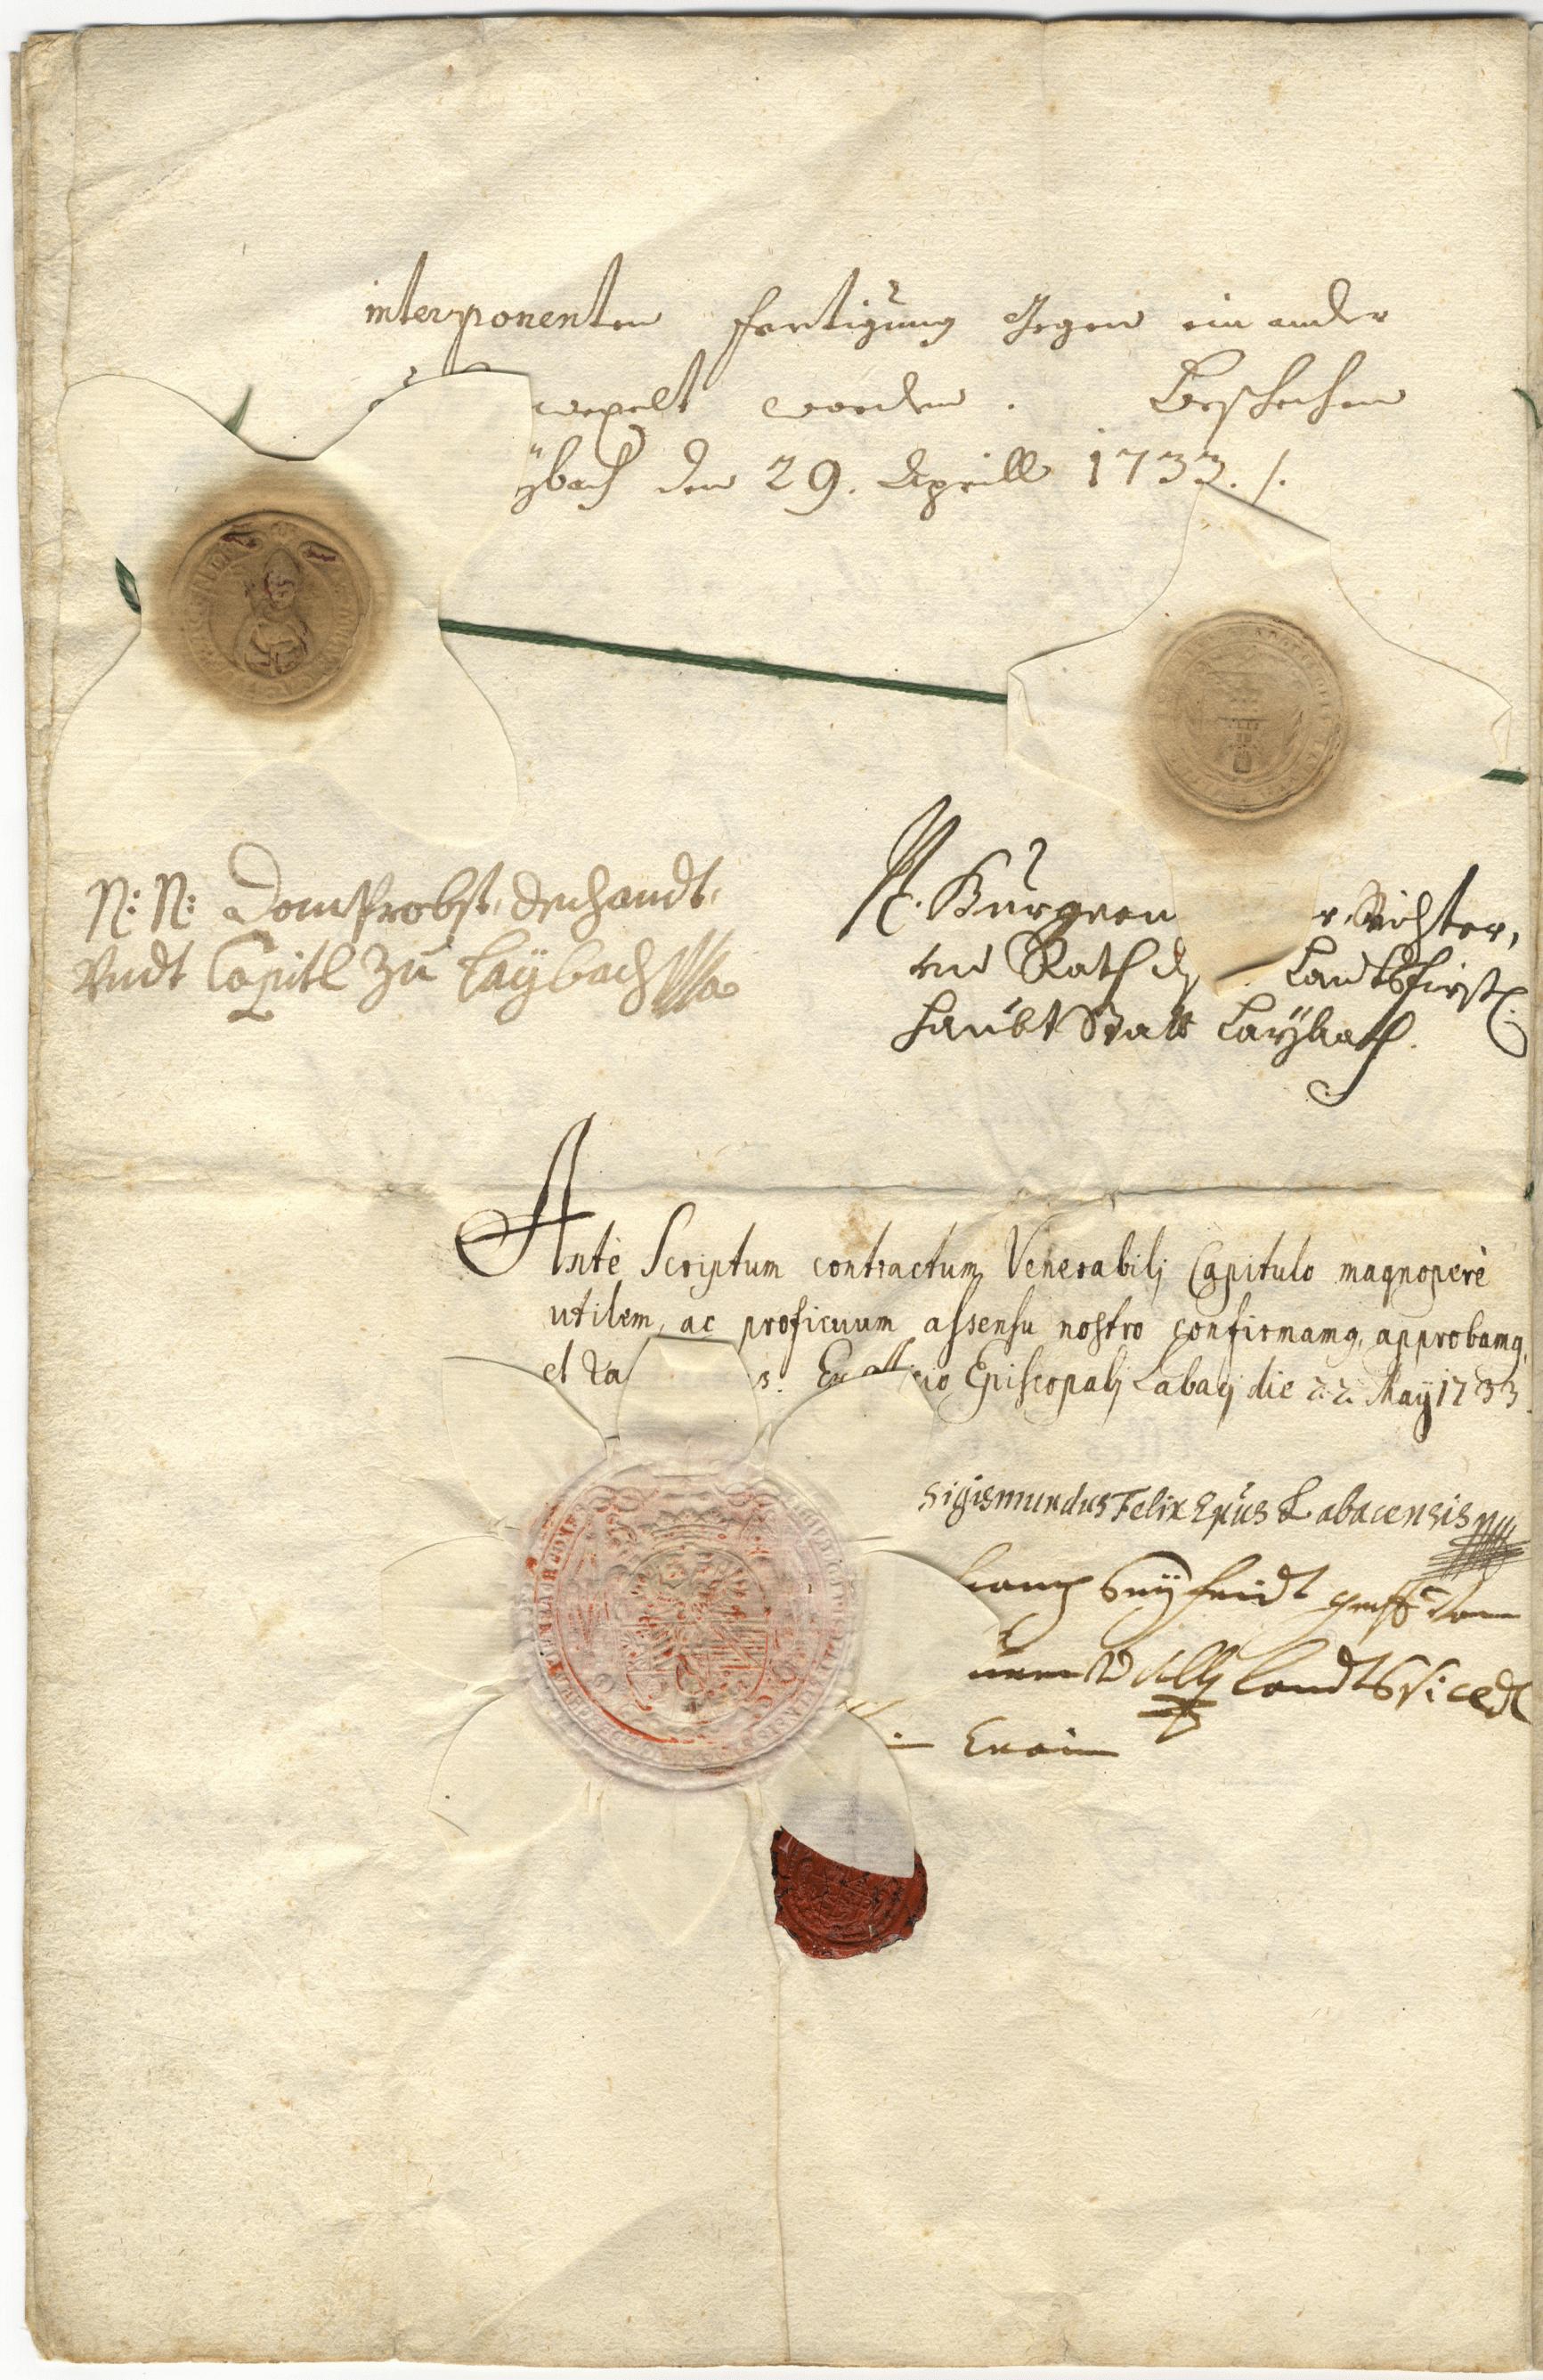 interponenten fertigung gegen ein ander
wexelt worden. Beschechen
ÿbach den 29. Aprill 1733 ./.
N: N: DomProbst, dechandt,
Vndt Capitl Zu Laÿbach
N. Burgerm r. Richter,
vnd Rath d Landtsfürstl:
haubt Statt Laÿbach.
Antè Scriptum contractum Venerabilj Capitulo magnoperè
utilem, ac proficuum assensu nostro confirmamq, approbamq,
et ra s. Ex officio Episcopalj Labacj die 22. Maÿ 1733.
Sigismundus Felix Epūs Labacensis
Seÿfridt graff
Landts Vicedt
Crain